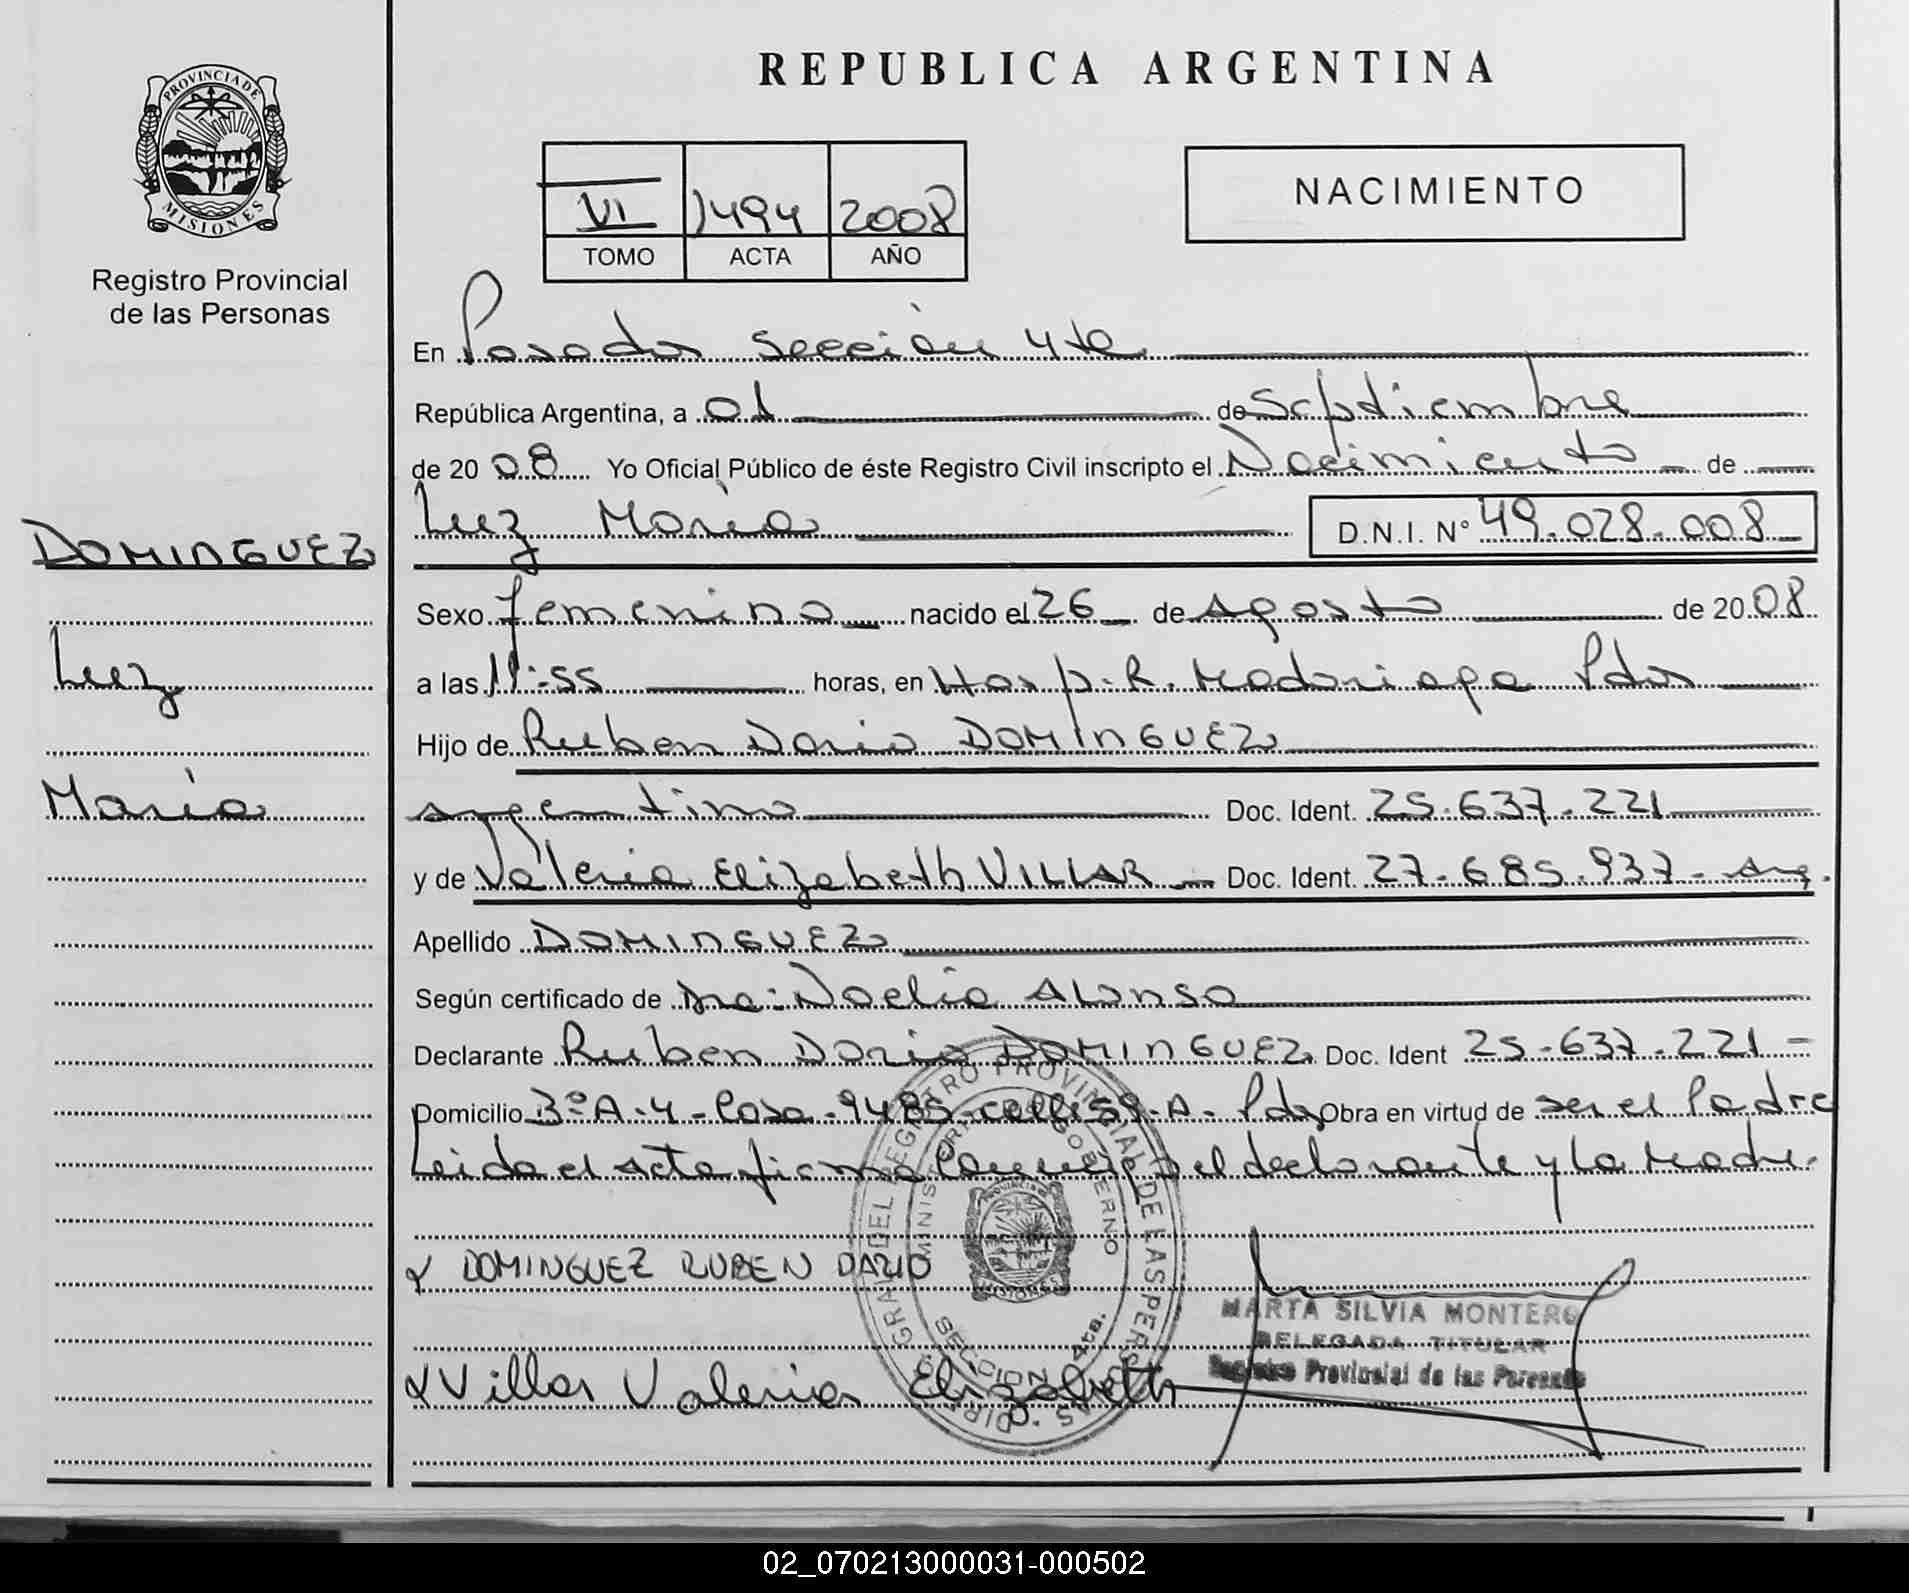 REPUBLICA ARGENTINA
PROVINCIA DE
MISIONES
Registro Provincial
de las Personas
VI 1494 2008
TOMO ACTA AÑO
NACIMIENTO
En Posadas Sección 4ta
República Argentina, a 01 de Septiembre
de 2008 Yo Oficial Público de éste Registro Civil inscripto el Nacimiento de
Luz María D.N.I. Nº 49.028.008
DOMINGUEZ
Luz
María
Sexo femenino nacido el 26 de Agosto de 2008
a las 11:55 horas, en Hosp. R. Madariaga Pdas
Hijo de Ruben Dario DOMINGUEZ
argentino Doc. Ident. 25.637.221
y de Valeria Elizabeth VILLAR Doc. Ident. 27.685.937 - Arg.
Apellido DOMINGUEZ
Según certificado de Dra: Noelia Alonso
Declarante Ruben Dario DOMINGUEZ Doc. Ident 25.637.221 -
Domicilio 3º A-4- Casa - 9485 - calle 59-A- Pdas Obra en virtud de ser el Padre
Leida el acta firma conmigo el declarante y la Madre.
X DOMINGUEZ RUBEN DARIO
X Villar Valeria Elizabeth
MARTA SILVIA MONTERO
DELEGADA TITULAR
Registro Provincial de las Personas
DIR. GRAL DEL REGISTRO PROVINCIAL DE LAS PERSONAS
MINISTERIO GOBIERNO
PROVINCIA
MISIONES
SECCION 4ta.
02_070213000031-000502